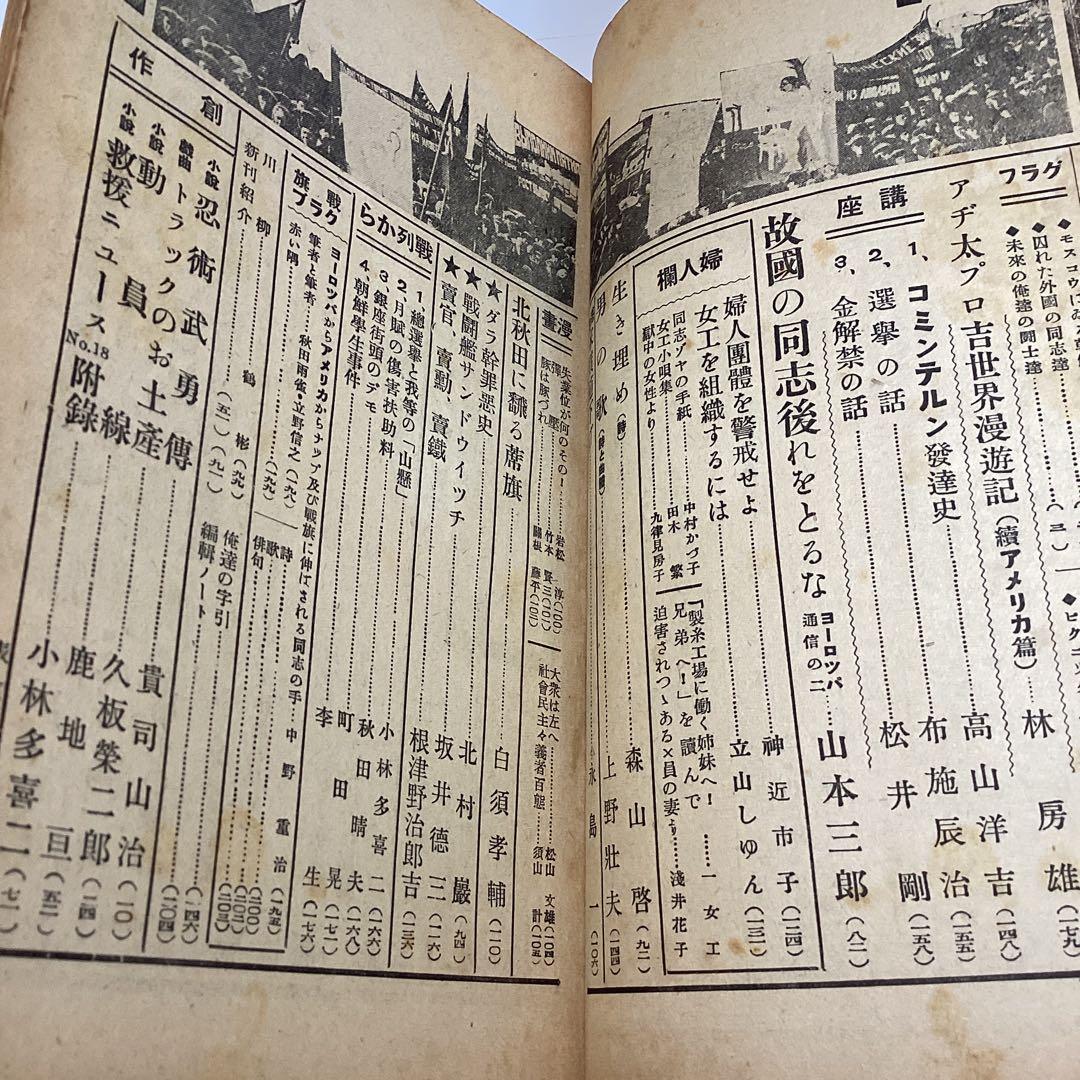 グラフ
◆囚れた外國の同志達
◆未來の俺達の鬪士達
林房雄(一七九)
アヂ太プロ吉世界漫遊記(續アメリカ篇)
高山洋吉(一四八)
講座
1、コミンテルン發達史
布施辰治(一五五)
2、選擧の話
松井剛(一五八)
3、金解禁の話
故國の同志後れをとるな
ヨーロツパ通信の二
山本三郎(八二)
婦人欄
婦人團體を警戒せよ
神近市子(一二四)
女工を組織するには
立山しゆん(一三一)
同志ゾヤの手紙
中村かづ子
女工小唄集
田木繁
獄中の女性より
九律見房子
「製糸工場に働く姉妹へ!
一女工
兄弟へ!」を讀んで
迫害されつゝある×員の妻より
淺井花子
生き埋め(詩)
森山啓(九二)
男の歌
上野壯夫(一四四)
永島一(一〇六)
漫畫
失業位が何のその!
岩松淳(一〇〇)
竹本賢三(一〇二)
豚は豚づれ
關根藤平(一〇三)
大衆は左へ
松山文雄(一〇四)
社會民主々義者百態
須山計(一〇五)
北秋田に飜る蓆旗
白須孝輔(一一〇)
★ダラ幹罪惡史
北村巖(九四)
★戰鬪艦サンドウイツチ
坂井德三(一一六)
★賣官、賣勳、賣鐵
根津野治郎吉(一三六)
戰列から
1 總選擧と我等の「山懸」
小林多喜二(一六六)
2 月賦の傷害扶助料
秋田晴夫(一六八)
3 銀座街頭のデモ
町田晃
4 朝鮮學生事件
李生(一七六)
戰旗グラフ
ヨーロツパからアメリカからナツプ及び戰旗に伸ばされる同志の手
中野重治(一九五)
筆者と筆者
赤い隅
秋田雨雀・立野信之(一九八)
詩歌(二〇〇)
俳句(二〇二)
川柳
鶴彬(一九九)
新刊紹介(五一)(九一)
俺達の字引
編輯ノート(二〇三)
創作
小說
忍術武勇傳
貴司山治(一〇)
戲曲
トラックのお土產
久板榮二郎(二四)
小說
動員線
鹿地亘(五二)
小說
救援ニュースNo.18附錄
小林多喜二(七一)
(一四六)
(二〇四)